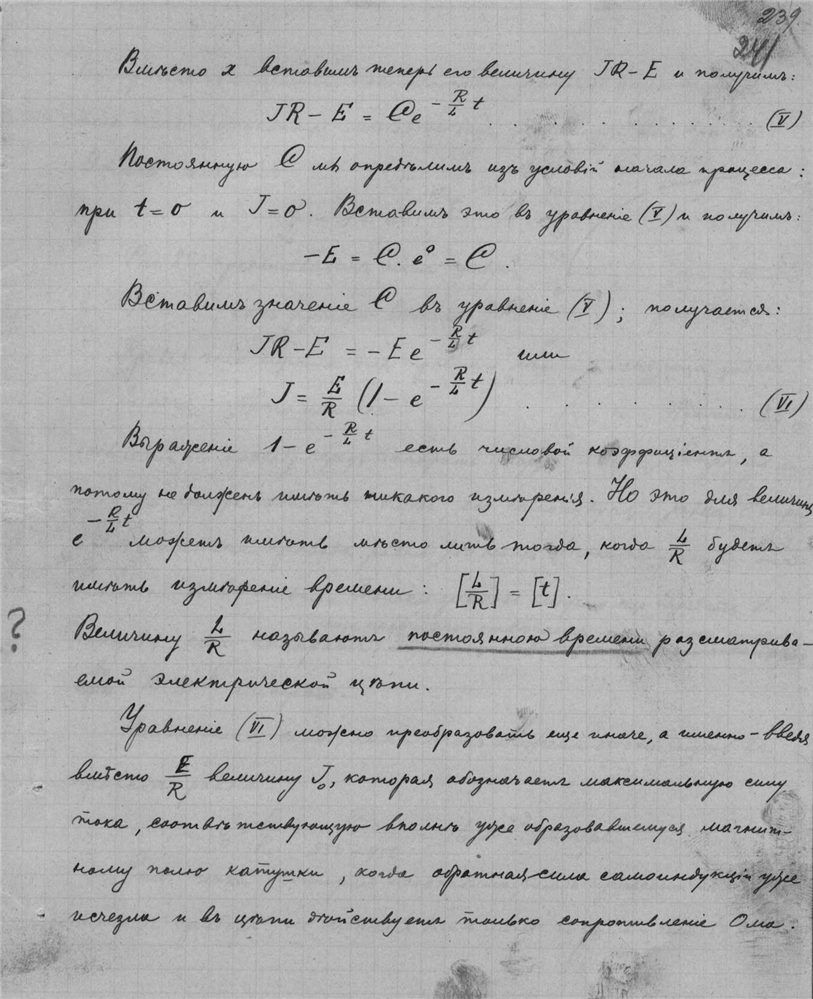 239
241
Вмѣсто x вставимъ теперь его величину JR-E и получимъ:
JR - E = C e^{-\frac{R}{L}t} . . . . . . . . . . . . . . (V)
Постоянную C мы опредѣлимъ изъ условій начала процесса:
при t=0 и J=0. Вставимъ это въ уравненіе (V) и получимъ:
-E = C. e^0 = C.
Вставимъ значеніе C въ уравненіе (V); получается:
JR-E = -E e^{-\frac{R}{L}t} или
J = \frac{E}{R} (1-e^{-\frac{R}{L}t}) . . . . . . . . . . (VI)
Выраженіе 1-e^{-\frac{R}{L}t} есть числовой коэффиціентъ, а
потому не долженъ имѣть никакого измѣренія. Но это для величины
e^{-\frac{R}{L}t} можетъ имѣть мѣсто лишь тогда, когда \frac{L}{R} будетъ
имѣть измѣреніе времени: [\frac{L}{R}] = [t].
? Величину \frac{L}{R} называютъ постоянною времени разсматрива-
емой электрической цѣпи.
Уравненіе (VI) можно преобразовать еще иначе, а именно - введя
вмѣсто \frac{E}{R} величину J_0, которая обозначаетъ максимальную силу
тока, соотвѣтствующую вполнѣ уже образовавшемуся магнит-
ному полю катушки, когда обратная сила самоиндукціи уже
исчезла и въ цѣпи дѣйствуетъ только сопротивленіе Ома.